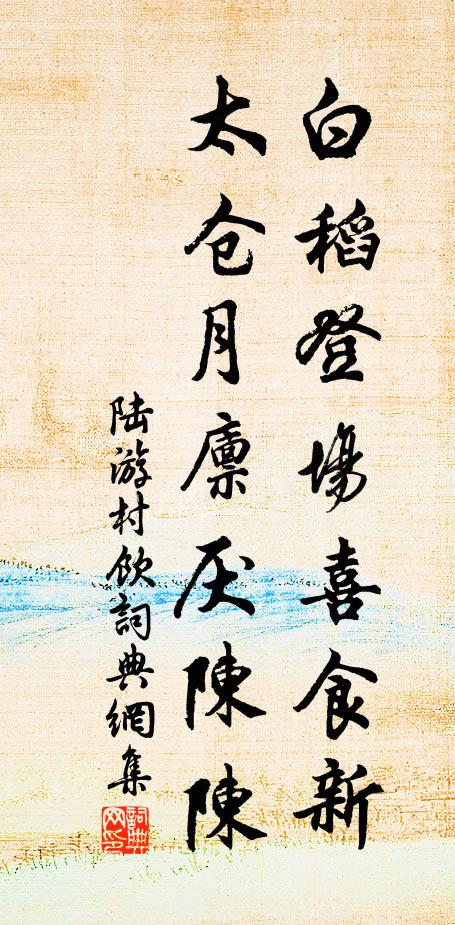 白稻登場喜食新
太仓月廪厌陳陳
陆游村飲詞典網集
詞典网印